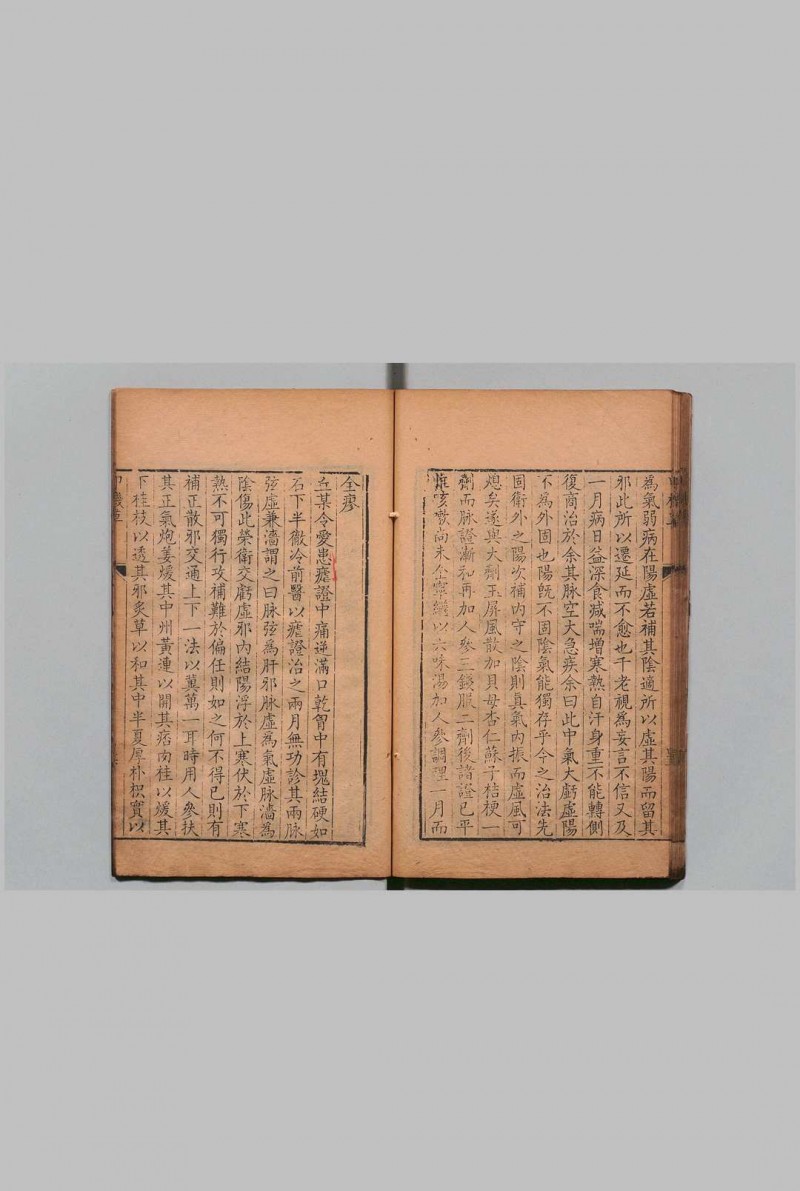 為氣弱病在陽虛若補其陰適所以虛其陽而留其
邪此所以遷延而不愈也千老視為妄言不信又及
一月病日益深食減喘增寒熱自汗身重不能轉側
復商治於余其脉空大急疾余曰此中氣大虧虛陽
不為外固也陽旣不固陰氣能獨存乎今之治法先
固衛外之陽次補內守之陰則真氣內振而虛風可
熄矣遂與大劑玉屏風散加貝母杏仁蘇子桔梗一
劑而脉證漸和再加人參三錢服二劑後諸證已平
咳嗽尚未全寧繼以六味湯加人參調理一月而
全瘳
丘某令愛患瘧證中痛逆滿口乾胷中有塊結硬如
石下半徹冷前醫以瘧證治之兩月無功診其兩脉
弦虛兼濇謂之曰脉弦為肝邪脉虛為氣虛脉濇為
陰傷此榮衛交虧虛邪內結陽浮於上寒伏於下寒
熱不可獨行攻補難於偏任則如之何不得已則有
補正散邪交通上下一法以兾萬一耳時用人參扶
其正氣炮姜煖其中州黃連以開其痞肉桂以緩其
下桂枝以透其邪炙草以和其中半夏厚朴枳實以